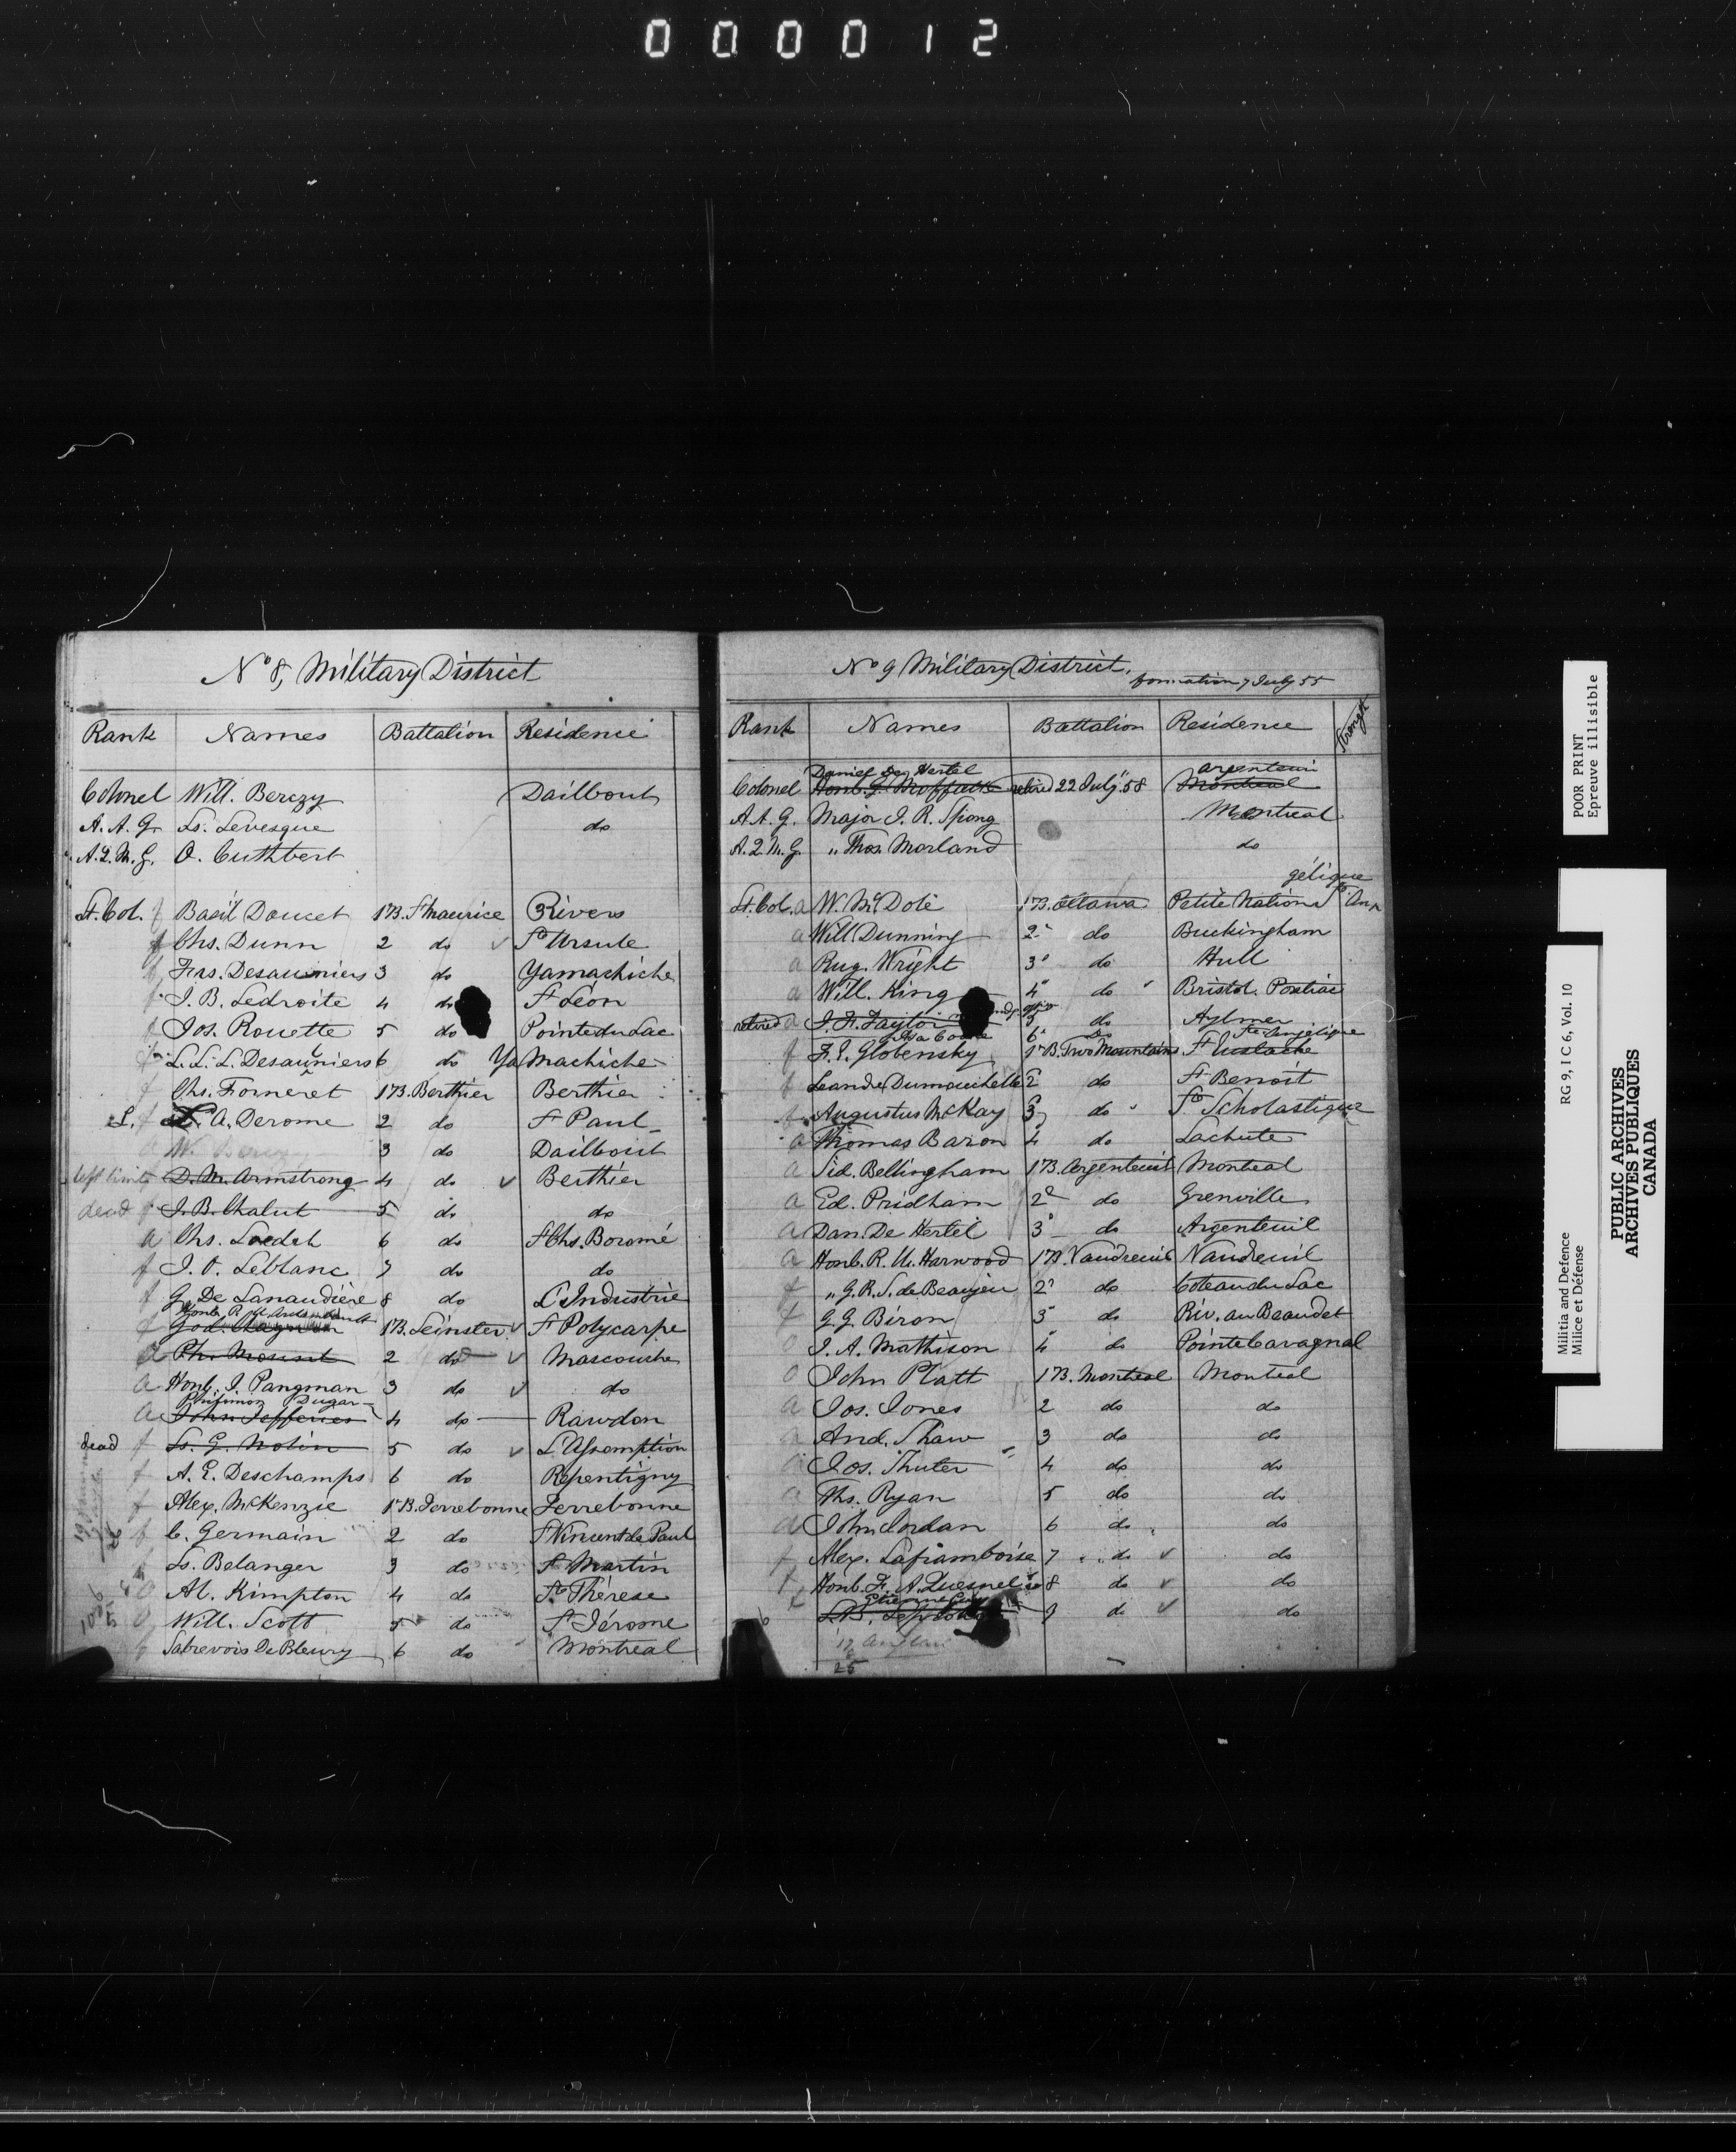 000012
No 8, Military District
Rank Names Battalion Residence
Colonel Will. Berczy Daillbout
A. A. G. Ls. Levesque do
A. Q. M. G. O. Cuthbert
Lt. Col. f Basil Doucet 1 B. St Maurice 3 Rivers
f Chs. Dunn 2 do v Ste Ursule
f Frs. Desauniers 3 do Yamachiche
f J. B. Ledroite 4 do St Léon
f Jos. Rouette 5 do Pointe du Lac
f L. L. L. Desauniers 6 do Ya Machiche
f Chs. Forneret 1 B. Berthier Berthier
L. f A. Derome 2 do St Paul
W. Berczy 3 do Daillbout
left limits D. M. Armstrong 4 do v Berthier
dead f J. B. Chalut 5 do do
a Chs. Loedel 6 do St Chs. Boromé
f J. O. Leblanc 7 do do
f G. De Lanaudière 8 do L'Industrie
f God. Chagnon 1 B. Leinster v St Polycarpe
a Ph. Mount 2 do v Mascouche
a Honb. J. Pangman 3 do v do
Philimon Dugas
a John Jefferies 4 do Rawdon
dead f Ls. G. Nolin 5 do v L'Assomption
f A. E. Deschamps 6 do Repentigny
f Alex. McKenzie 1r B. Terrebonne Terrebonne
f C. Germain 2 do St Vincent de Paul
f Ls. Belanger 3 do St Martin
a Al. Kimpton 4 do Ste Thérese
a Will. Scott 5 do St Jérome
Sabrevois De Bleury 6 do Montreal
No 9 Military District,
formation 7 July 55
Rank Names Battalion Residence Strength
Daniel De Hertel argenteuil
Colonel Honb. G. Moffatt retired 22 July 58 Montreal
A. A. G. Major J. R. Spong Montreal
A. Q. M. G. " Thos. Morland do
gélique
Lt. Col. a W. McDole 1 B. Ottawa Petite Nation Ste An
a Will. Dunning 2" do Buckingham
a Rug. Wright 3" do Hull
a Will. King 4" do Bristol. Pontiac
retired a J. F. Taylor 5 do Aylmer
6 do Ste Angélique
f F. E. Globensky 1r B. Two Mountains St Eustache
f Leandre Dumouchelle 2 do St Benoit
f Augustus McKay 3 do Ste Scholastique
a Thomas Baron 4 do Lachute
a Sid. Bellingham 1 B. Argenteuil Montreal
a Ed. Pridham 2d do Grenville
a Dan. De Hertel 3" do Argenteuil
a Honb. R. U. Harwood 1 B. Vaudreuil Vaudreuil
f " G. R. S. de Beaujeu 2" do Coteau du Lac
f G. G. Biron 3" do Riv. au Beaudet
a J. A. Mathison 4" do Pointe Cavagnal
a John Platt 1 B. Montreal Montreal
a Jos. Jones 2 do do
a And. Shaw 3 do do
a Jos. Shuter 4 do do
a Ths. Ryan 5 do do
a John Jordan 6 do do
f Alex. Laframboise 7 do v do
f Honb. F. A. Quesnel 8 do v do
9 do v do
25
POOR PRINT
Epreuve illisible
RG 9, I C 6, Vol. 10
Militia and Defence
Milice et Défense
PUBLIC ARCHIVES
ARCHIVES PUBLIQUES
CANADA